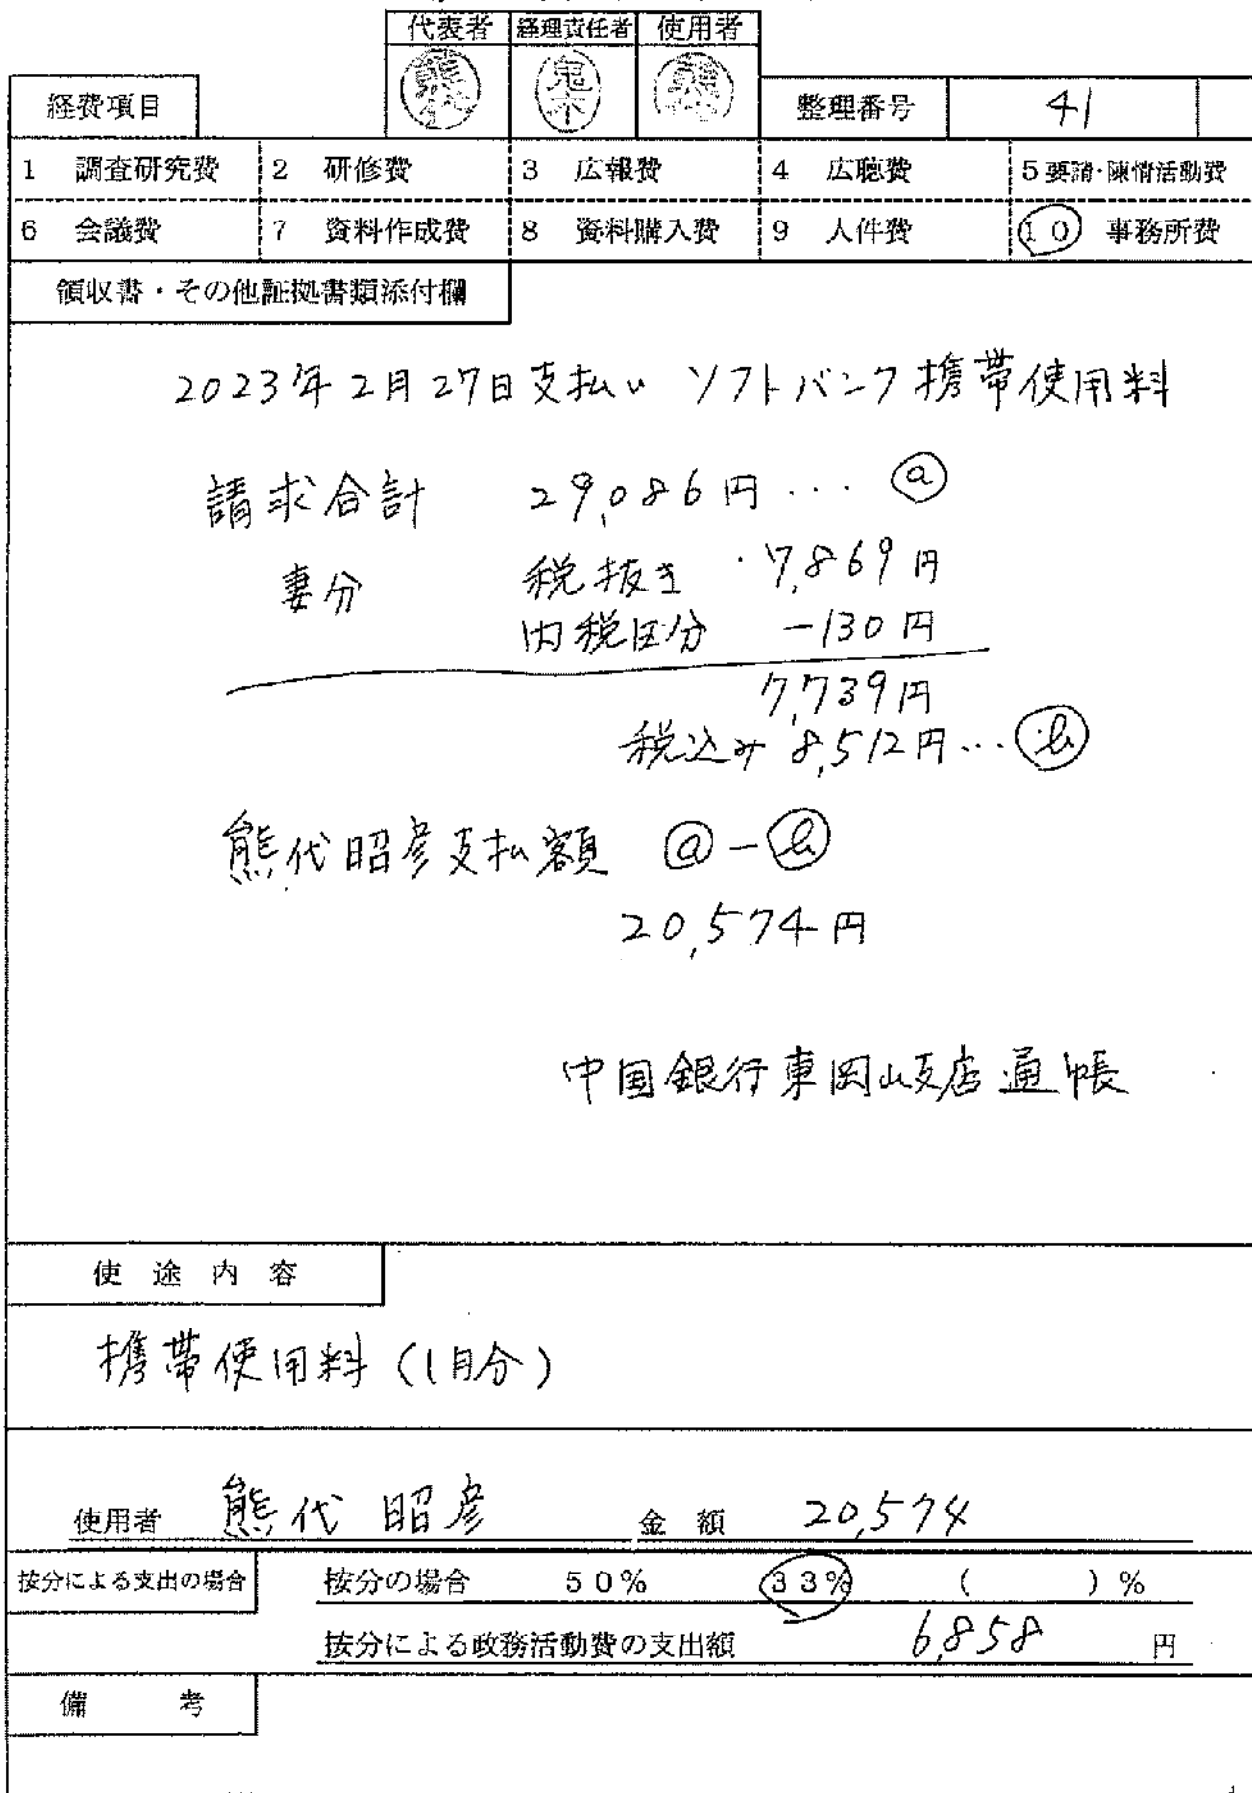 代表者 経理責任者 使用者
熊代 鬼木 熊代
経費項目 整理番号 41
1 調査研究費 2 研修費 3 広報費 4 広聴費 5 要請・陳情活動費
6 会議費 7 資料作成費 8 資料購入費 9 人件費 10 事務所費
領収書・その他証拠書類添付欄
2023年2月27日支払い ソフトバンク携帯使用料
請求合計 29,086円… ⓐ
妻分 税抜き 7,869円
内税区分 -130円
7,739円
税込み 8,512円… ⓑ
熊代昭彦支払額 ⓐ-ⓑ
20,574円
中国銀行東岡山支店通帳
使途内容
携帯使用料(1月分)
使用者 熊代 昭彦 金額 20,574
按分による支出の場合 按分の場合 50% 33% ( )%
按分による政務活動費の支出額 6,858 円
備考